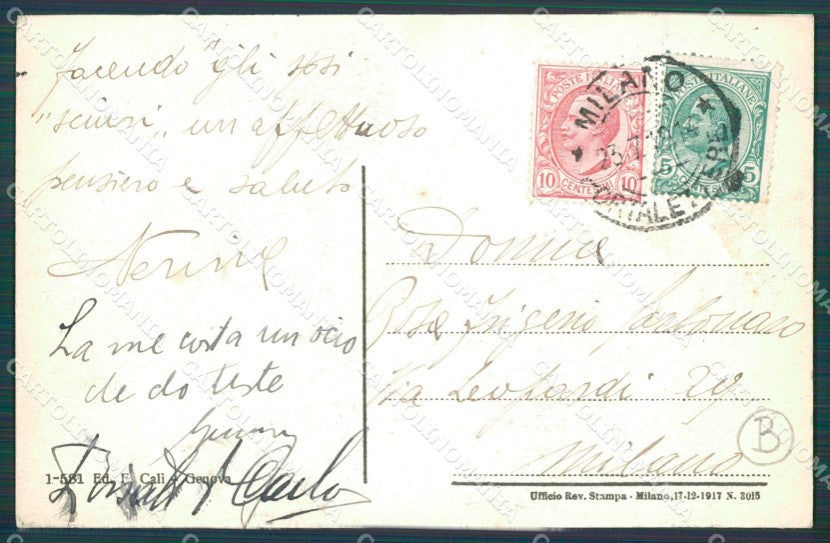 facendo "gli sposi
"sciuri" un affettuoso
pensiero e saluto
Nerina
La me costa un ocio
de do teste
Carlo
1-581 Ed. F. Calì - Genova
POSTE ITALIANE
10 CENTES. 10
POSTE ITALIANE
5 CENTES. 5
MILANO
Donnie
Rosa Frigerio Carbonaro
Via Leopardi 29
Milano
B
Ufficio Rev. Stampa - Milano, 17-12-1917 N. 3015
CARTOLINOMANIA